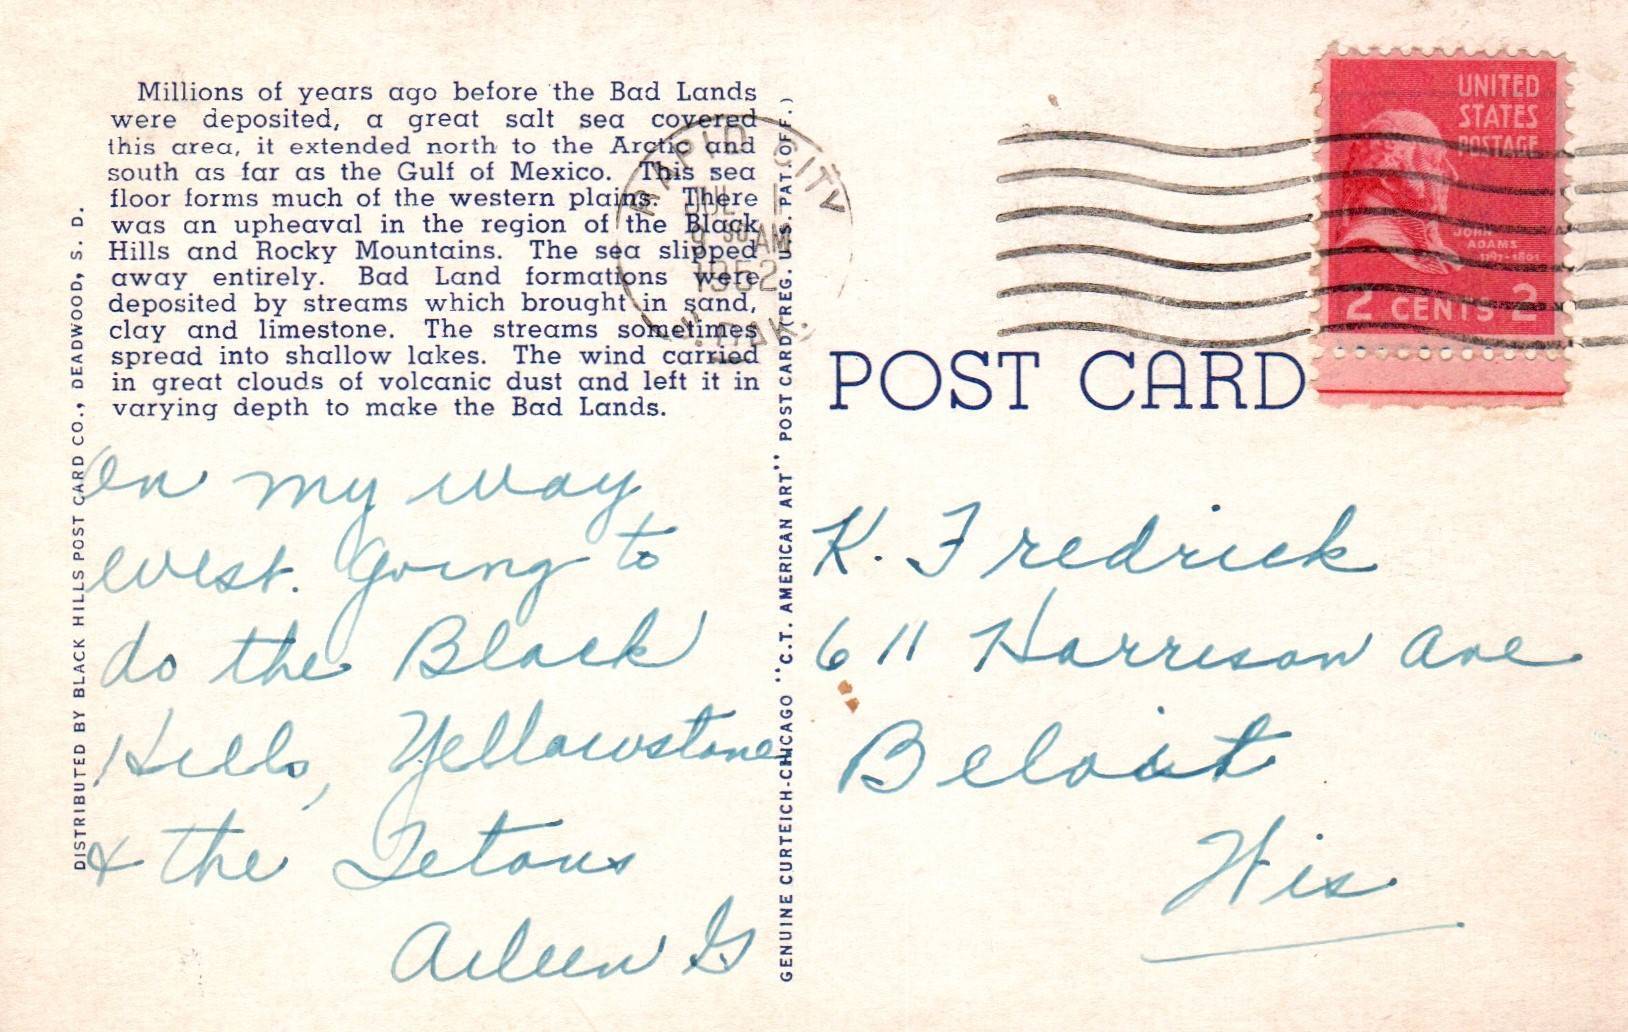 Millions of years ago before the Bad Lands
were deposited, a great salt sea covered
this area, it extended north to the Arctic and
south as far as the Gulf of Mexico. This sea
floor forms much of the western plains. There
was an upheaval in the region of the Black
Hills and Rocky Mountains. The sea slipped
away entirely. Bad Land formations were
deposited by streams which brought in sand,
clay and limestone. The streams sometimes
spread into shallow lakes. The wind carried
in great clouds of volcanic dust and left it in
varying depth to make the Bad Lands.
DISTRIBUTED BY BLACK HILLS POST CARD CO., DEADWOOD, S. D.
On my way
West. Going to
do the Black
Hills, Yellowstone
& the Tetons
Aileen G
GENUINE CURTEICH-CHICAGO "C.T. AMERICAN ART" POST CARD (REG. U.S. PAT. OFF.)
RAPID CITY
JUL 1
9 30 AM
1952
S. DAK.
UNITED
STATES
POSTAGE
JOHN
ADAMS
1797-1801
2 CENTS 2
POST CARD
K. Fredrick
611 Harrison Ave
Beloit
Wis